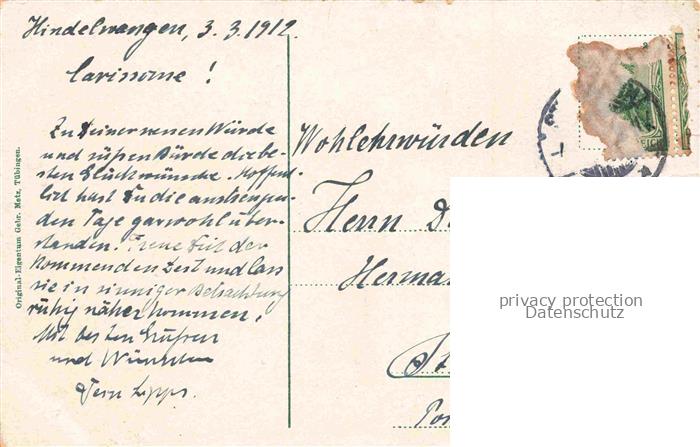 Hindelwangen, 3.3.1912.
Carissime!
Zu Deiner neuen Würde
und süßen Bürde die be-
sten Glückwünsche. Hoffent-
lich hast Du die anstrengen-
den Tage gar wohl über-
standen. Freue Dich der
kommenden Zeit und lass
sie in sinniger Betrachtung
ruhig näher kommen.
Mit besten Grüßen
und Wünschen
Dein Lipps.
Original-Eigentum Gebr. Metz, Tübingen.
Wohlehrwürden
Herrn
Herma
St
Po
privacy protection
Datenschutz